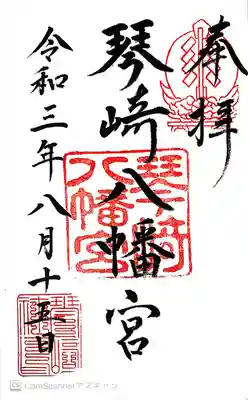 奉拝
琴崎八幡宮
令和三年八月十五日
琴崎八幡宮
CamScanner でスキャン